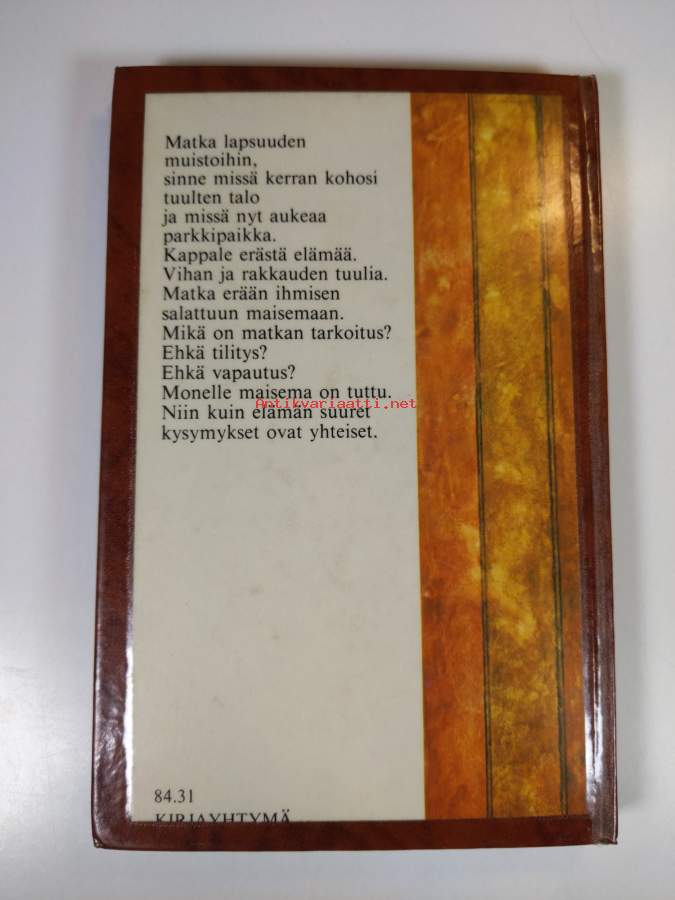 Matka lapsuuden
muistoihin,
sinne missä kerran kohosi
tuulten talo
ja missä nyt aukeaa
parkkipaikka.
Kappale erästä elämää.
Vihan ja rakkauden tuulia.
Matka erään ihmisen
salattuun maisemaan.
Mikä on matkan tarkoitus?
Ehkä tilitys?
Ehkä vapautus?
Monelle maisema on tuttu.
Antikvariaatti.net
Niin kuin elämän suuret
kysymykset ovat yhteiset.
84.31
KIRJAYHTYMÄ